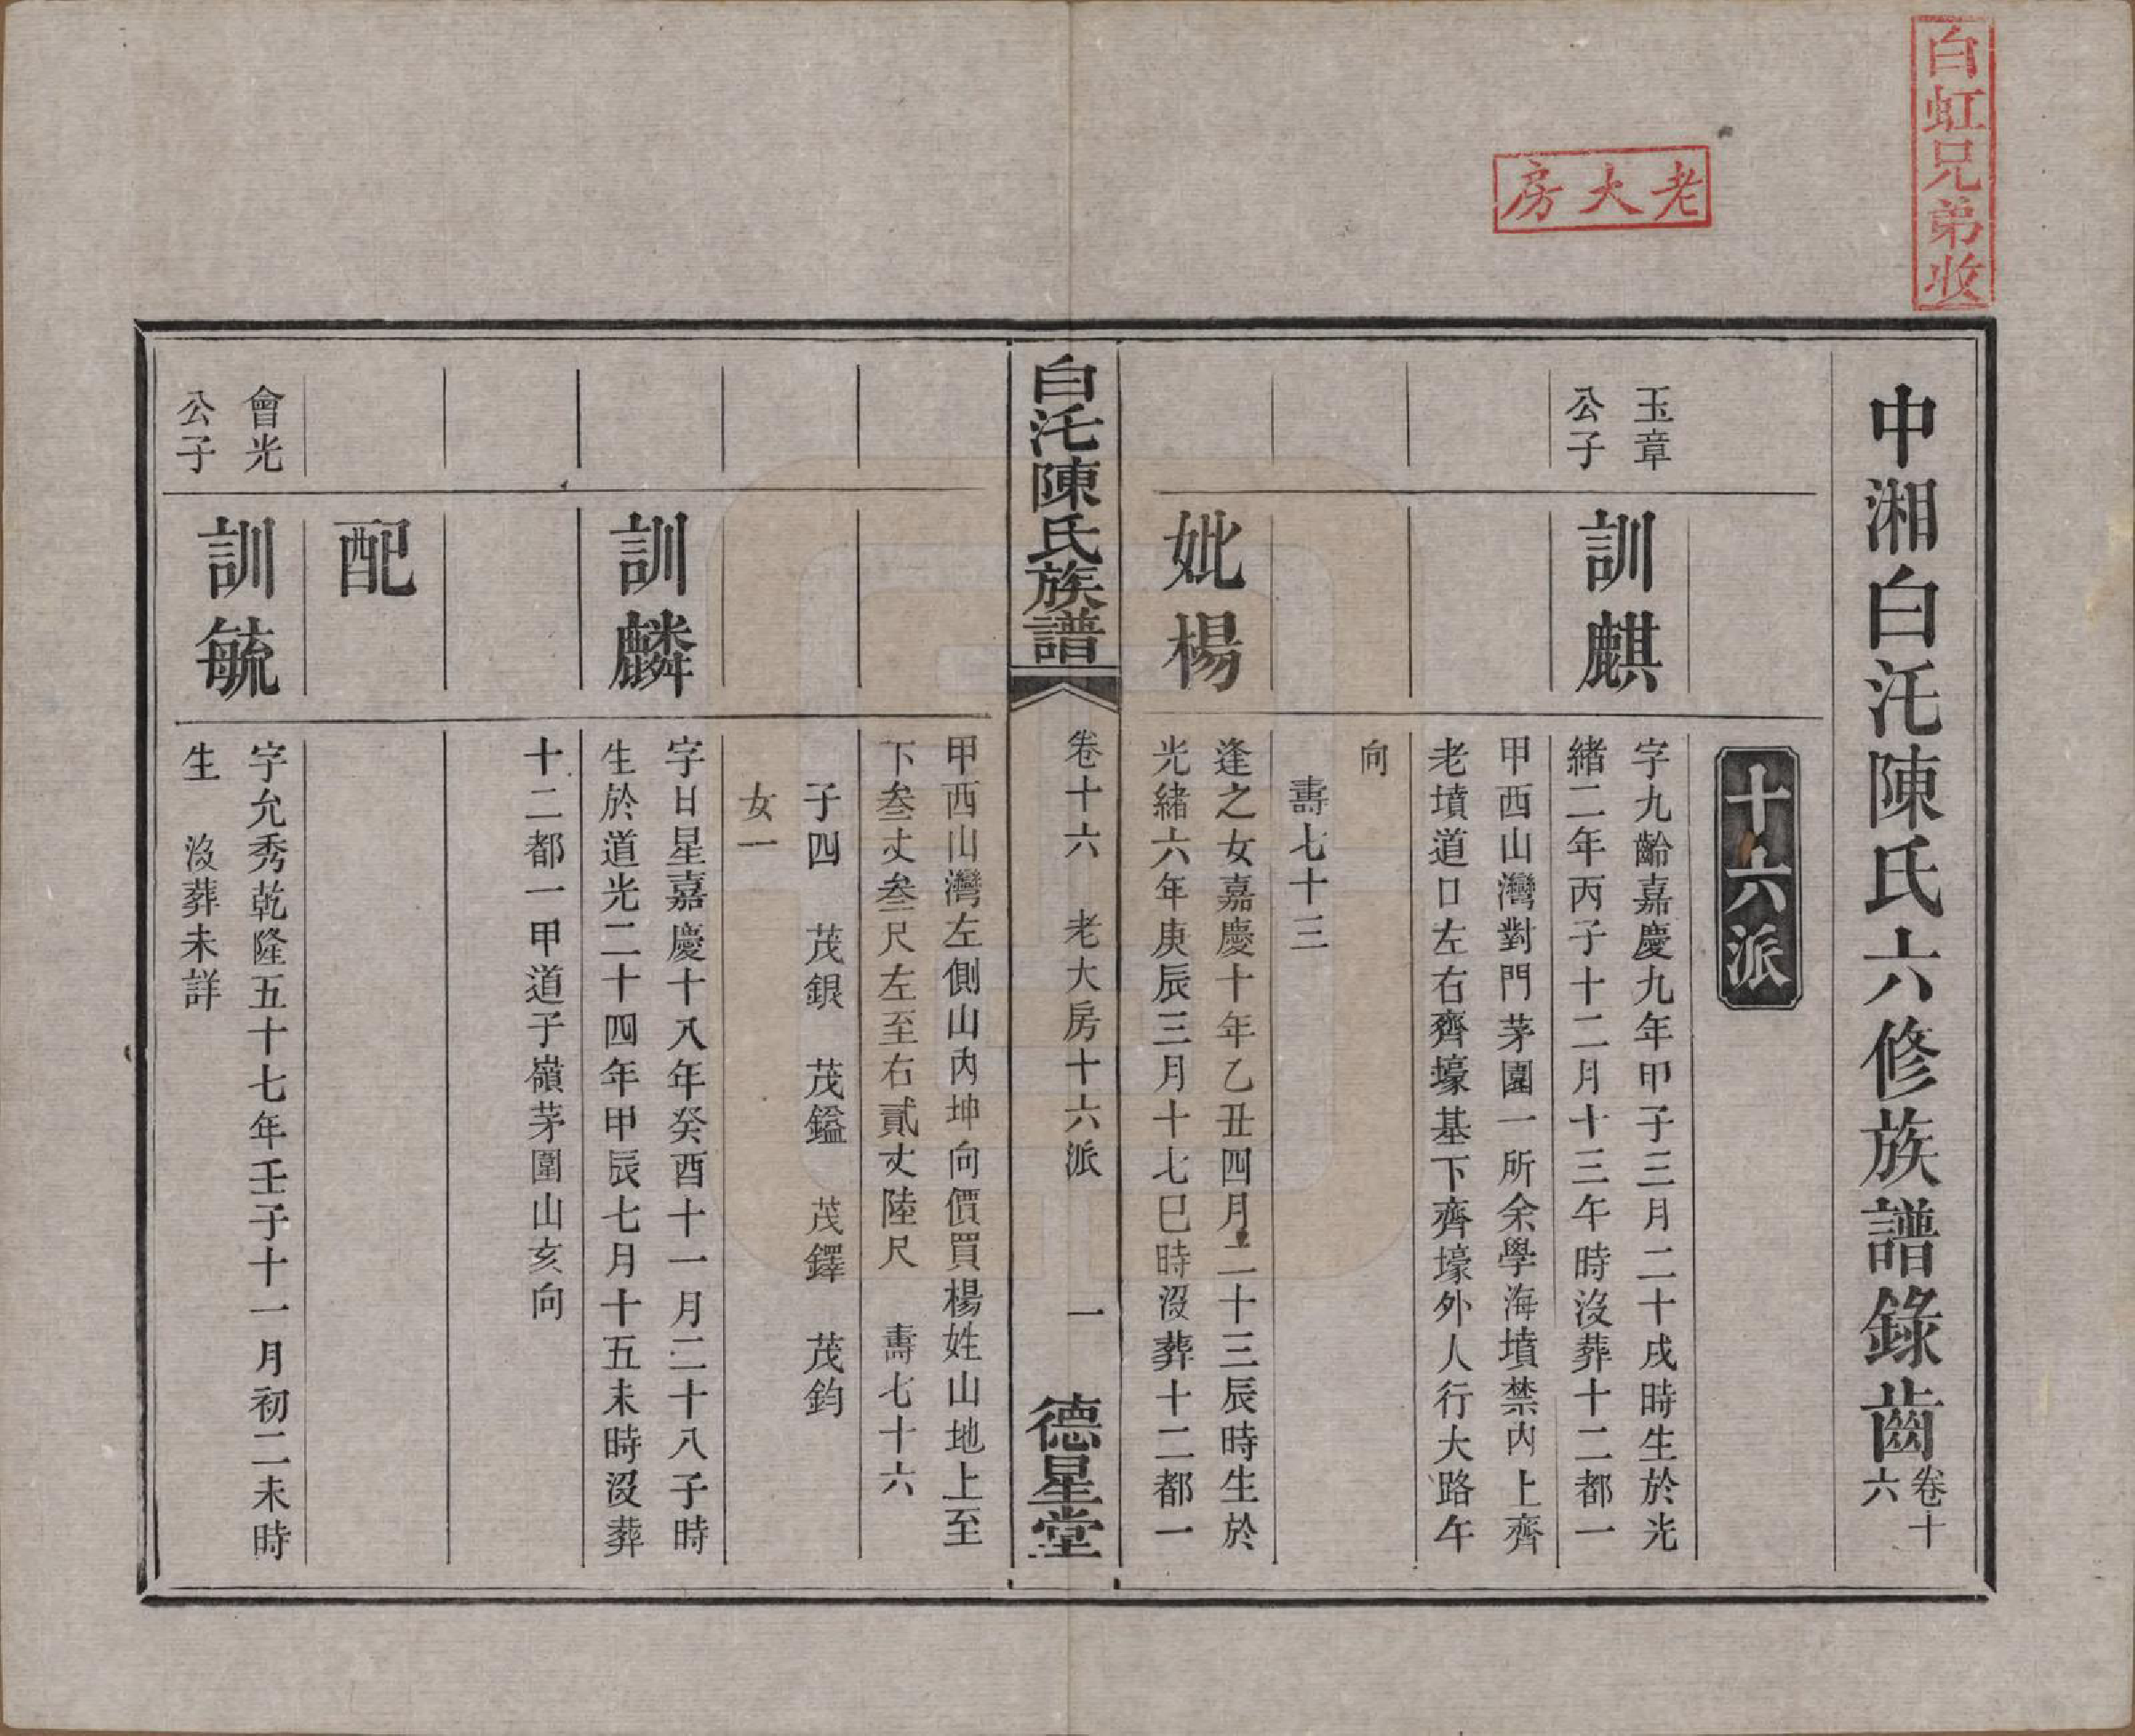 白虹兄弟收
老大房
中湘白汑陳氏六修族譜錄齒卷十六
十六派
玉章公子
訓麒
字九齡嘉慶九年甲子三月二十戌時生於光
緒二年丙子十二月十三午時沒葬十二都一
甲西山灣對門茅園一所余學海墳禁內上齊
老墳道口左右齊壕基下齊壕外人行大路午
向
壽七十三
妣楊
逢之女嘉慶十年乙丑四月二十三辰時生於
光緒六年庚辰三月十七巳時沒葬十二都一
白汑陳氏族譜
卷十六 老大房十六派 一
德星堂
甲西山灣左側山內坤向價買楊姓山地上至
下叁丈叁尺左至右貳丈陸尺 壽七十六
子四 茂銀 茂鎰 茂鐸 茂鈞
女一
訓麟
字日星嘉慶十八年癸酉十一月二十八子時
生於道光二十四年甲辰七月十五未時沒葬
十二都一甲道子嶺茅園山亥向
配
會光公子
訓毓
字允秀乾隆五十七年壬子十一月初二未時
生 沒葬未詳